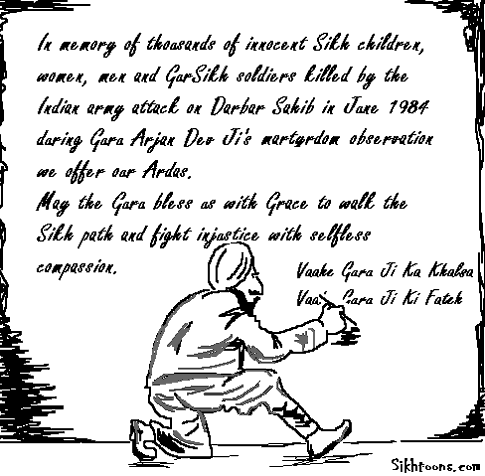 In memory of thousands of innocent Sikh children,
women, men and GurSikh soldiers killed by the
Indian army attack on Darbar Sahib in June 1984
during Guru Arjan Dev Ji's martyrdom observation
we offer our Ardas.
May the Guru bless us with Grace to walk the
Sikh path and fight injustice with selfless
compassion.
Vaahe Guru Ji Ka Khalsa
Guru Ji Ki Fateh
Sikhtoons.com